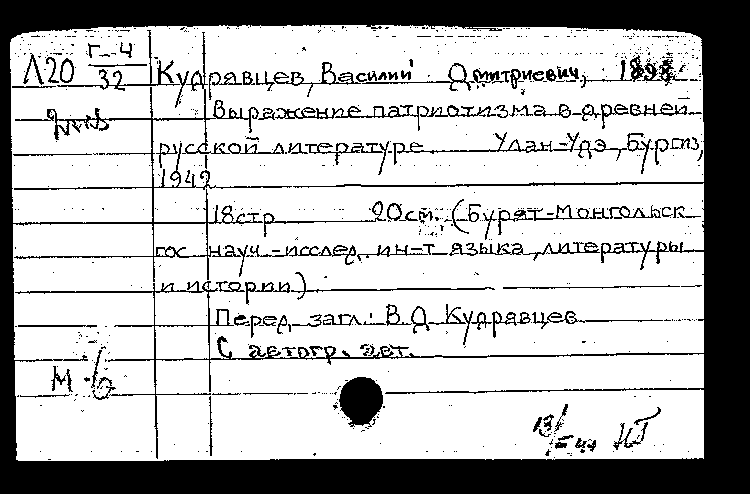 Л20 Г-4
32
Кудрявцев, Василий Дмитриевич, 1898
Выражение патриотизма в древней
русской литературе. Улан-Удэ, Бургиз,
1942
18стр 20см. (Бурят-Монгольск
гос науч.-исслед. ин-т языка, литературы
и истории).
Перед загл.: В.Д. Кудрявцев
С автогр. авт.
М-6
13/II-44 НГ